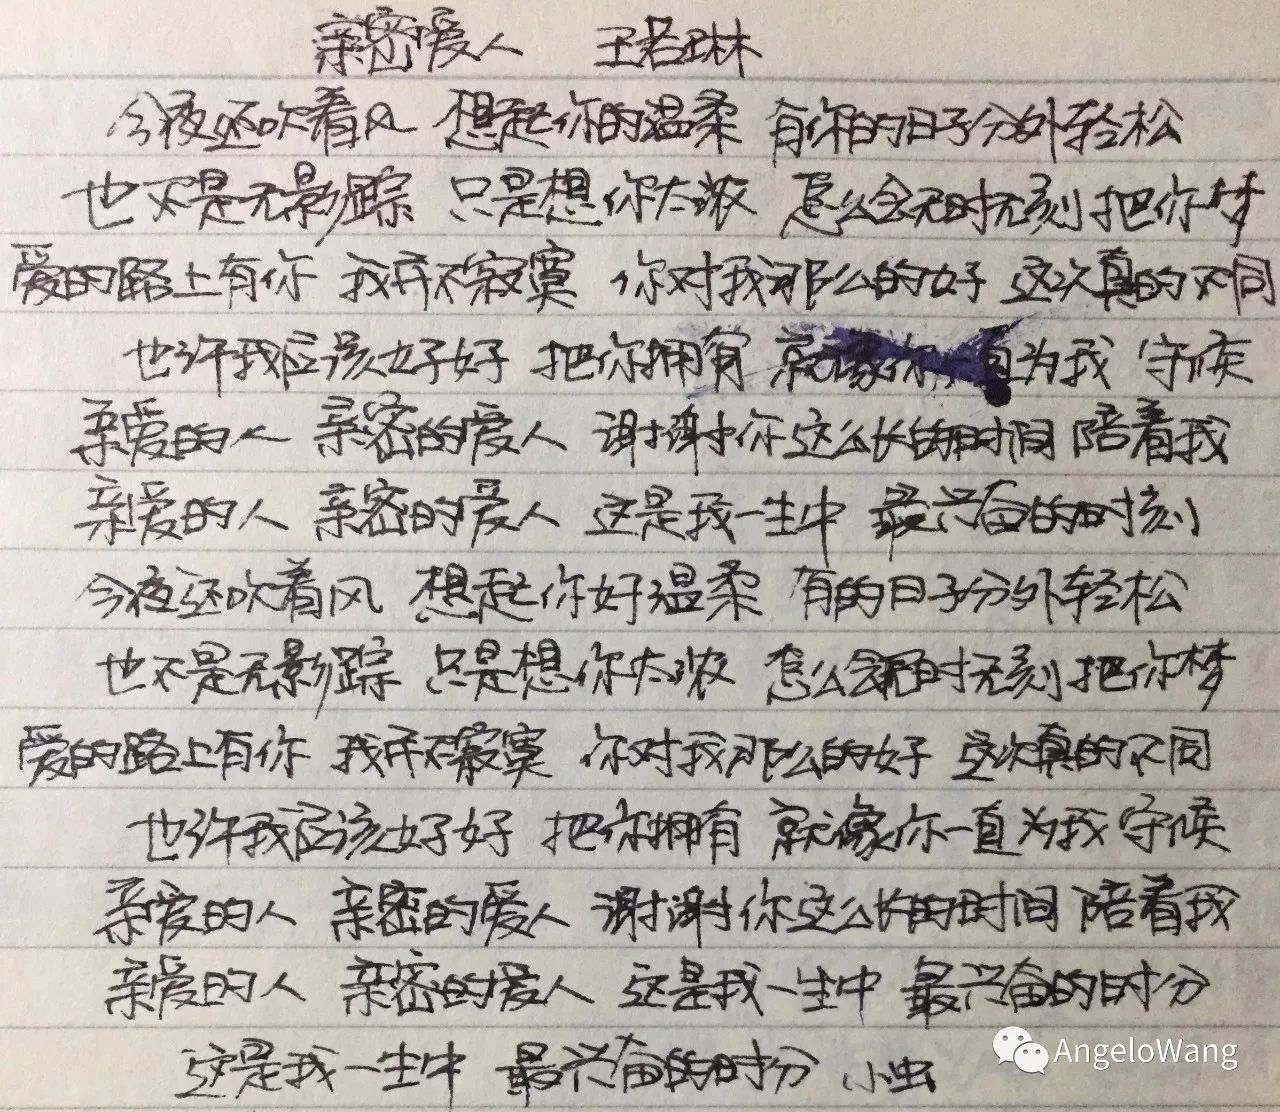 亲密爱人 王若琳
今夜还吹着风 想起你的温柔 有你的日子分外轻松
也不是无影踪 只是想你太浓 怎么会无时无刻把你梦
爱的路上有你 我并不寂寞 你对我那么的好 这次真的不同
也许我应该好好 把你拥有 就像你一直为我 守候
亲爱的人 亲密的爱人 谢谢你这么长的时间 陪着我
亲爱的人 亲密的爱人 这是我一生中 最兴奋的时刻
今夜还吹着风 想起你好温柔 有的日子分外轻松
也不是无影踪 只是想你太浓 怎么会无时无刻把你梦
爱的路上有你 我并不寂寞 你对我那么的好 这次真的不同
也许我应该好好 把你拥有 就像你一直为我 守候
亲爱的人 亲密的爱人 谢谢你这么长的时间 陪着我
亲爱的人 亲密的爱人 这是我一生中 最兴奋的时分
这是我一生中 最兴奋的时分 小虫
AngeloWang